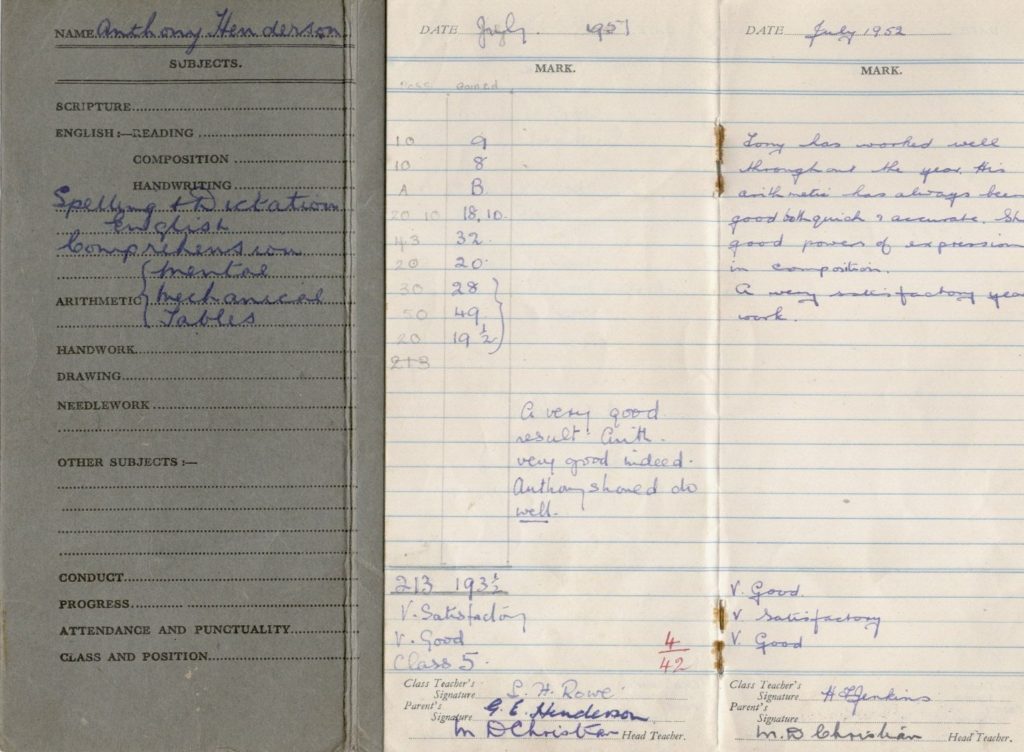 NAME Anthony Henderson
SUBJECTS.
SCRIPTURE
ENGLISH:—READING
COMPOSITION
HANDWRITING
Spelling & Dictation
English
Comprehension
mental
ARITHMETIC mechanical
Tables
HANDWORK
DRAWING
NEEDLEWORK
OTHER SUBJECTS:—
CONDUCT
PROGRESS
ATTENDANCE AND PUNCTUALITY
CLASS AND POSITION
DATE July. 1951
MARK.
Poss. Gained
10 9
10 8
A B
20 10 18,10.
43 32.
20 20.
30 28
50 49
20 19½
213
A very good
result. Arith.
very good indeed.
Anthony should do
well.
213 193½
V. Satisfactory
V. Good
Class 5. 4/42
Class Teacher's
Signature L. H. Rowe
Parent's
Signature G. E. Henderson
M D Christian Head Teacher.
DATE July 1952
MARK.
Tony has worked well
throughout the year. His
arithmetic has always been
good both quick & accurate.
good powers of expression
in composition.
A very satisfactory year
work.
V. Good
V. Satisfactory
V. Good
Class Teacher's
Signature Jenkins
Parent's
Signature
M. D Christian Head Teacher.